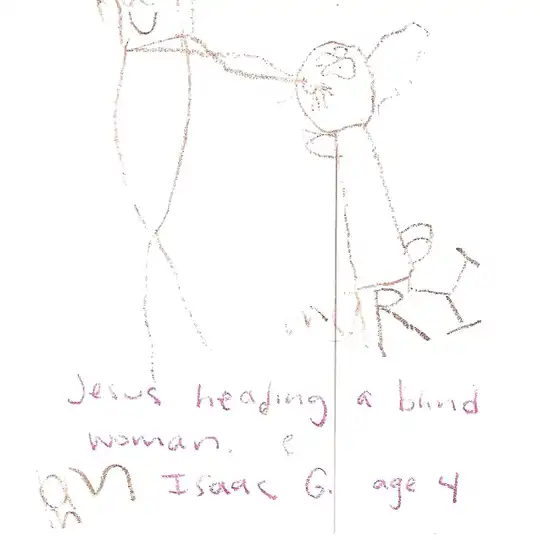 Jesus heading a blind
woman.
Isaac G. age 4